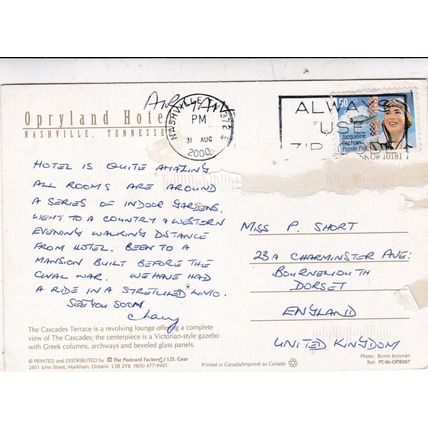 AIR MAIL
Opryland Hotel
NASHVILLE, TENNESSEE
NASHVILLE TN 372
PM
31 AUG
2000
ALWAYS
USE
ZIP
50
Jacqueline
Cochran
Pioneer Pilot
HOTEL IS QUITE AMAZING
ALL ROOMS ARE AROUND
A SERIES OF INDOOR GARDENS.
WENT TO A COUNTRY & WESTERN
EVENING WALKING DISTANCE
FROM HOTEL. BEEN TO A
MANSION BUILT BEFORE THE
CIVAL WAR. WE HAVE HAD
A RIDE IN A STRETCHED LIMO.
SEE YOU SOON
MISS P. SHORT
23A CHARMINSTER AVE:
BOURNEMOUTH
DORSET
ENGLAND
UNITED KINGDOM
The Cascades Terrace is a revolving lounge offering a complete
view of The Cascades; the centerpiece is a Victorian-style gazebo
with Greek columns, archways and beveled glass panels.
© PRINTED and DISTRIBUTED by The Postcard Factory / J.D. Gear
2801 John Street, Markham, Ontario L3R 2Y8 (905) 477-9901
Printed in Canada/Imprimé au Canada
Photo: Byron Jorjorian
Ref: PC46-OPR007